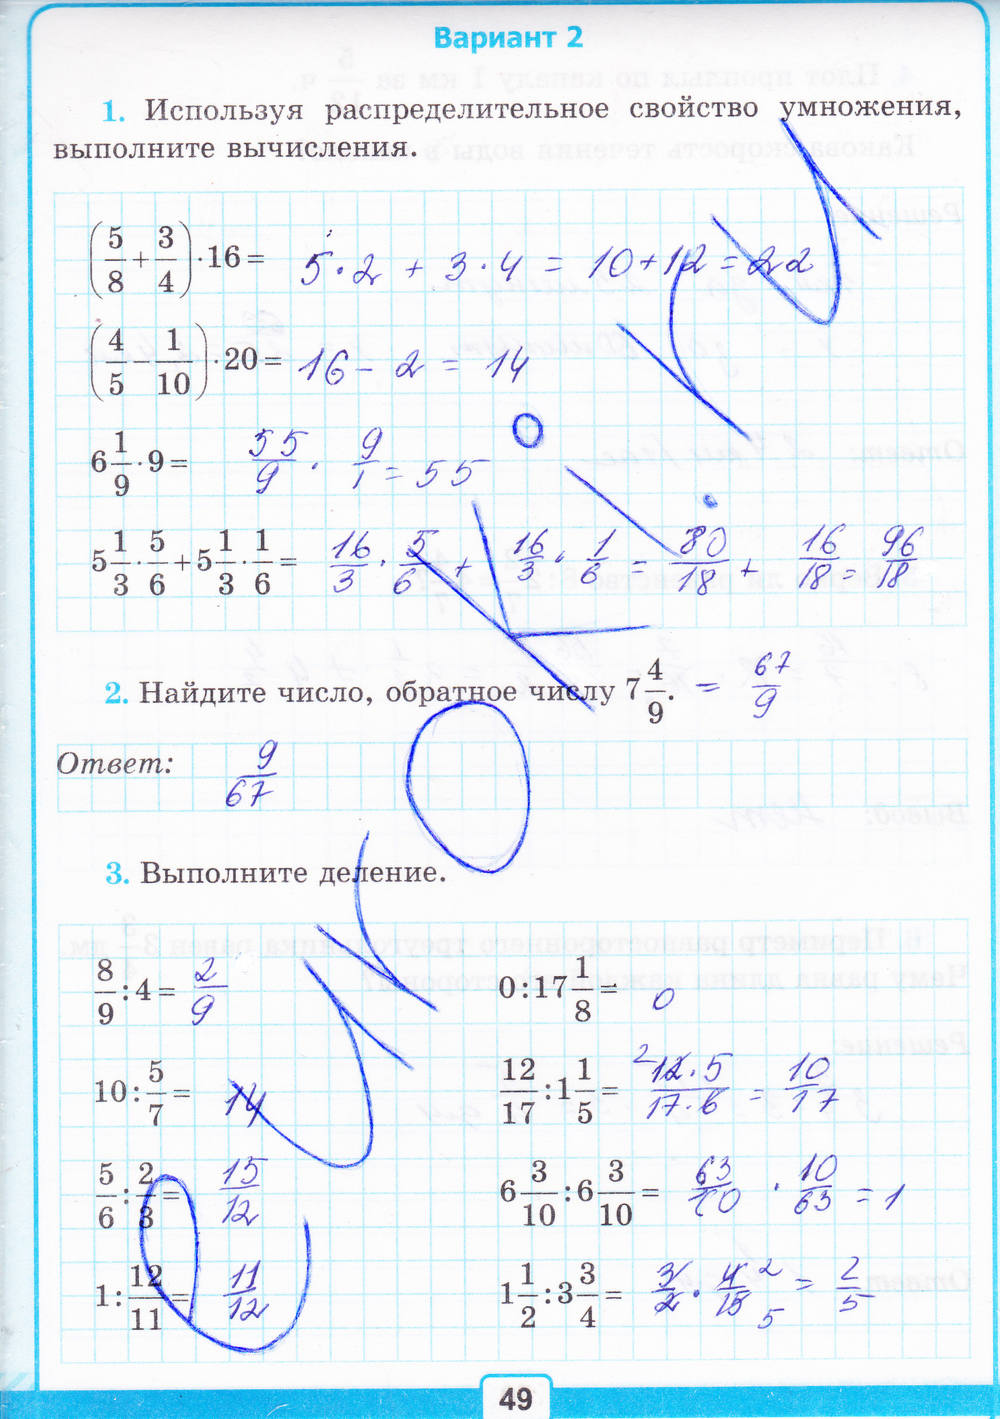 Вариант 2
1. Используя распределительное свойство умножения,
выполните вычисления.
(5/8 + 3/4) · 16 = 5 · 2 + 3 · 4 = 10 + 12 = 22
(4/5 - 1/10) · 20 = 16 - 2 = 14
6 1/9 · 9 = 55/9 · 9/1 = 55
5 1/3 · 5/6 + 5 1/3 · 1/6 = 16/3 · 5/6 + 16/3 · 1/6 = 80/18 + 16/18 = 96/18
2. Найдите число, обратное числу 7 4/9. = 67/9
Ответ: 9/67
3. Выполните деление.
8/9 : 4 = 2/9
0 : 17 1/8 = 0
10 : 5/7 = 14
12/17 : 1 1/5 = 2 12 · 5 / 17 · 6 = 10/17
5/6 : 2/3 = 15/12
6 3/10 : 6 3/10 = 63/10 · 10/63 = 1
1 : 12/11 = 11/12
1 1/2 : 3 3/4 = 3/2 · 4/15 2 5 = 2/5
49